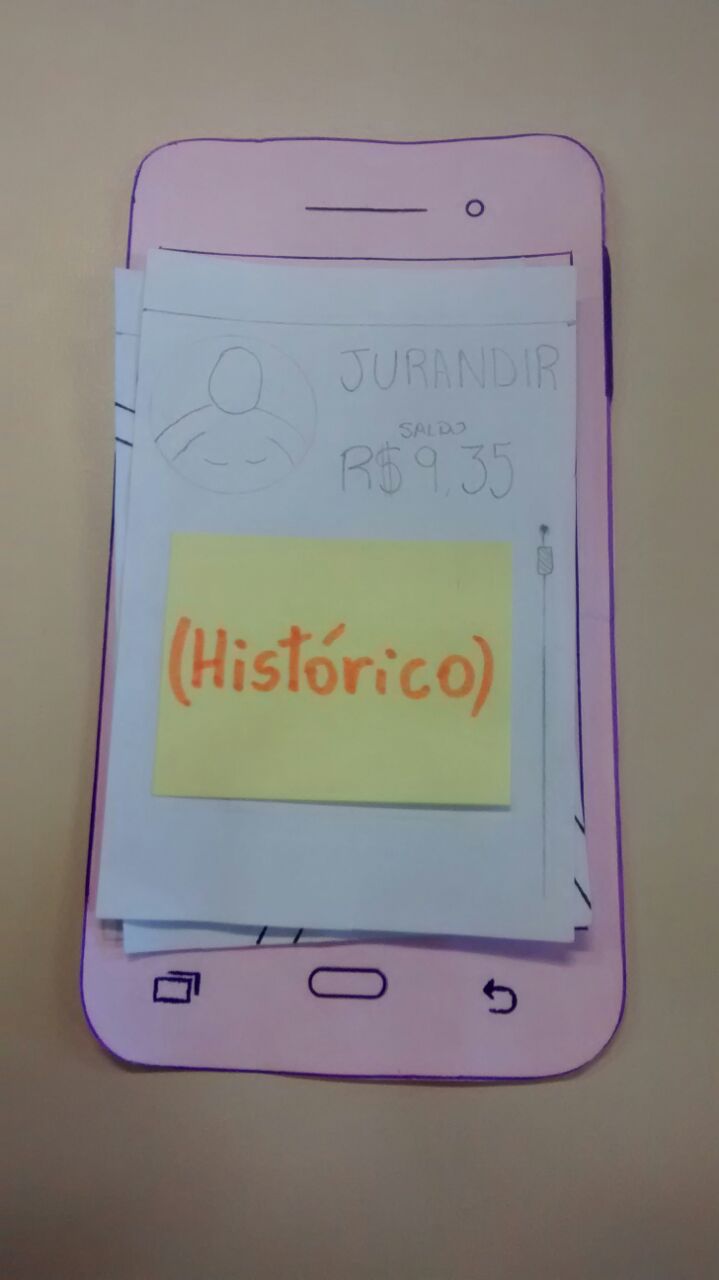 JURANDIR
SALDO
R$ 9,35
(Histórico)